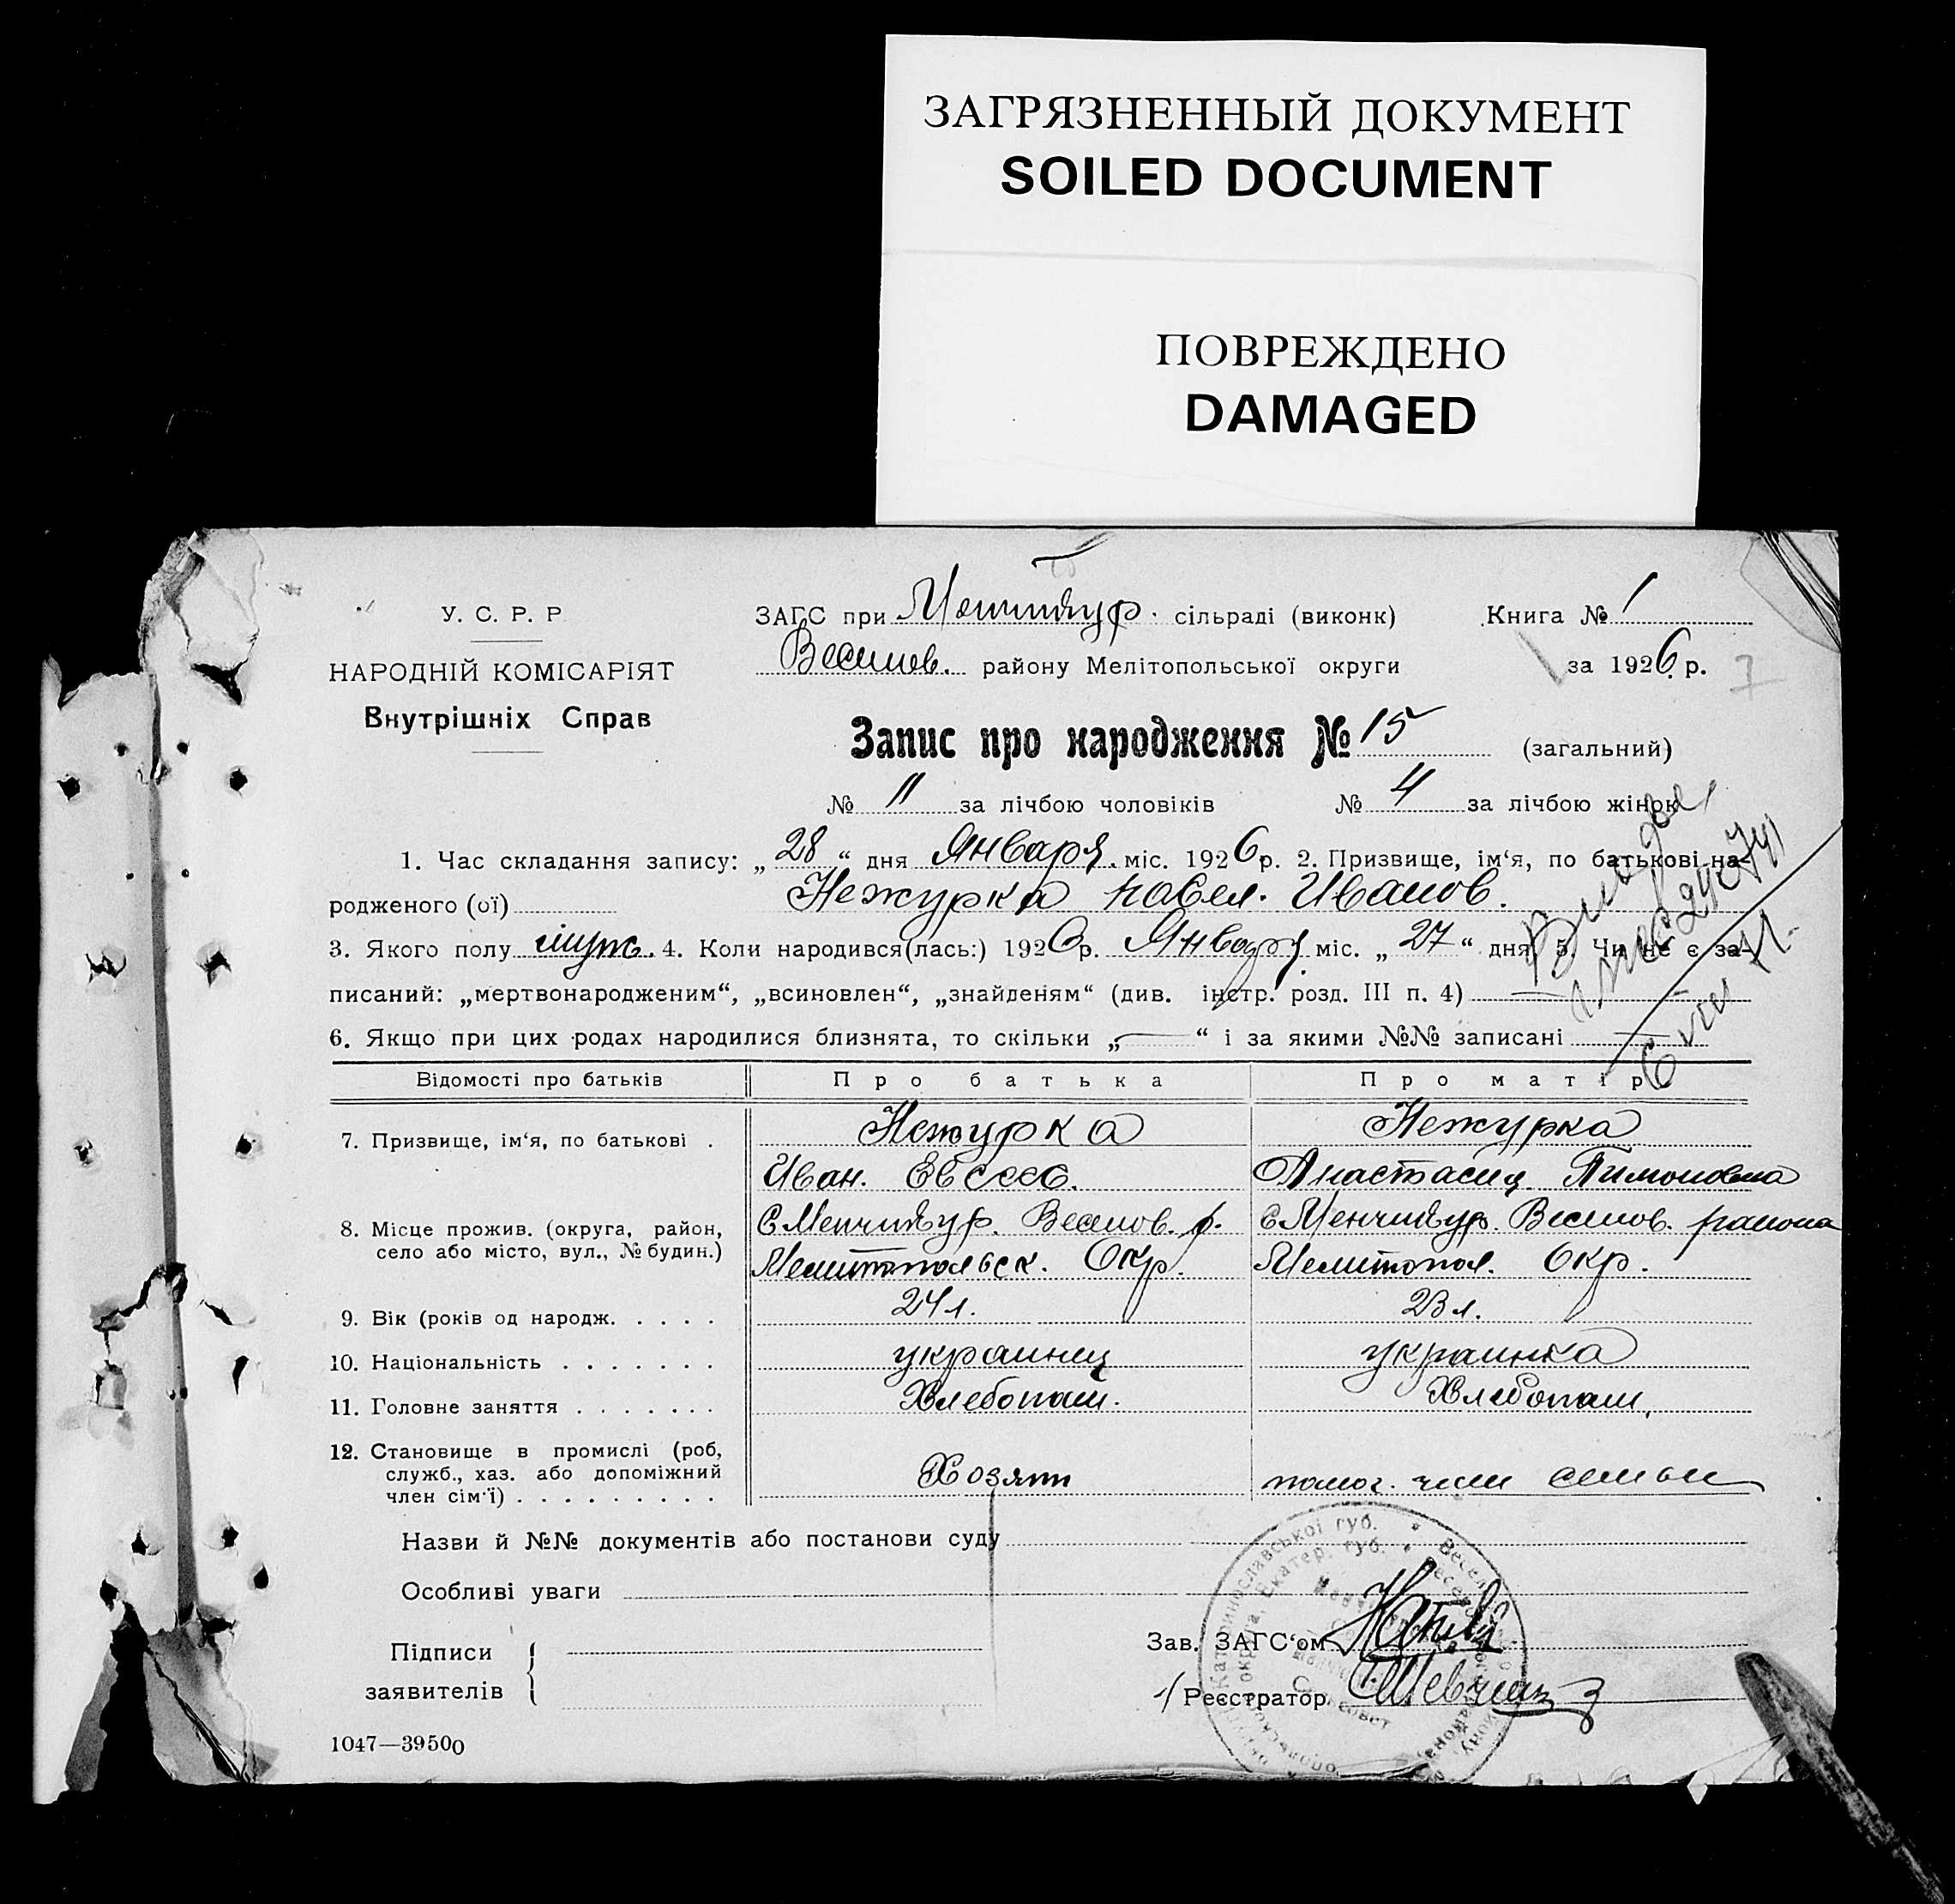 ЗАГРЯЗНЕННЫЙ ДОКУМЕНТ
SOILED DOCUMENT
ПОВРЕЖДЕНО
DAMAGED
У. С. Р. Р
НАРОДНІЙ КОМІСАРІЯТ
Внутрішніх Справ
ЗАГС при Менчикур. сільраді (виконк)
Веселов. району Мелітопольської округи
Книга № 1
за 1926 р. 7
Запис про народження № 15 (загальний)
№ 11 за лічбою чоловіків № 4 за лічбою жінок
1. Час складання запису: „28“ дня Января міс. 1926 р. 2. Призвище, ім‘я, по батькові на-
родженого (ої) Нежурка Павел. Иванов.
3. Якого полу муж. 4. Коли народився(лась:) 1926 р. Января міс. „27“ дня 5. Чи не є за-
писаний: „мертвонародженим“, „всиновлен“, „знайденям“ (див. інстр. розд. III п. 4) —
6. Якщо при цих родах народилися близнята, то скільки „—“ і за якими №№ записані —
Відомості про батьків Про батька Про матір
7. Призвище, ім‘я, по батькові . Нежурка Нежурка
Иван. Евсеев. Анастасия Тимоновна
8. Місце прожив. (округа, район, С Менчикур. Веселов. р. С Менчикур. Веселов. района
село або місто, вул., № будин.) Мелитопольск. Окр. Мелитопол. Окр.
9. Вік (років од народж. . . . . 24 л. 23 л.
10. Національність . . . . . . . украинец украинка
11. Головне заняття . . . . . . . Хлебопаш. Хлебопаш.
12. Становище в промислі (роб,
служб., хаз. або допоміжний Хозяин помог. член семьи
член сім‘ї) . . . . . . . . .
Назви й №№ документів або постанови суду
Особливі уваги
Підписи
заявителів
Зав. ЗАГС‘ом
Реєстратор
1047—39500